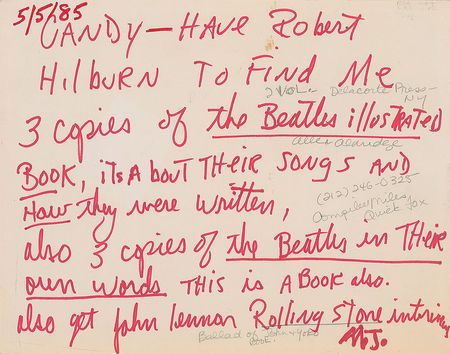 5/5/85
CANDY — HAVE Robert
Hilburn To Find Me
2 VOL. - Delacorte Press -
NY
3 copies of the Beatles illustrated
Allen Aldridge
Book, itsAbout THEIR SONGS AND
(212) 246-0325
How they were written,
Compiled Miles
Quick Fox
also 3 copies of the Beatles in THEIR
own words THIS is A Book also.
also get john lennon Rolling Stone
Ballad of John & Yoko
Book.
MJ.